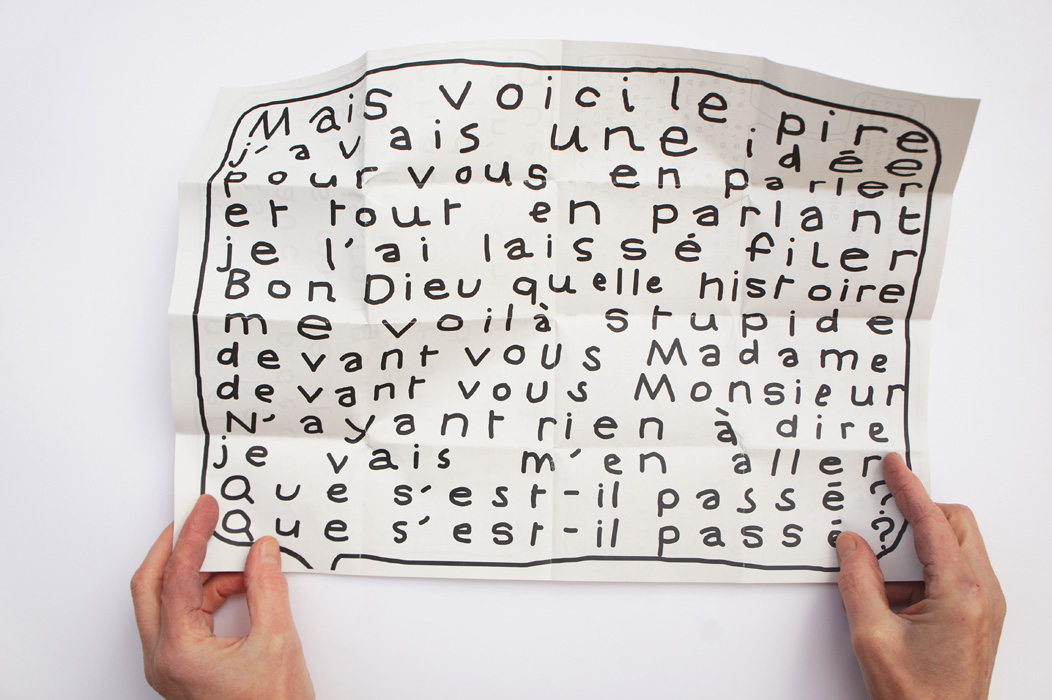 Mais voici le pire
j'avais une idée
pour vous en parler
et tout en parlant
je l'ai laissé filer
Bon Dieu quelle histoire
me voilà stupide
devant vous Madame
devant vous Monsieur
N'ayant rien à dire
je vais m'en aller
Que s'est-il passé ?
Que s'est-il passé ?